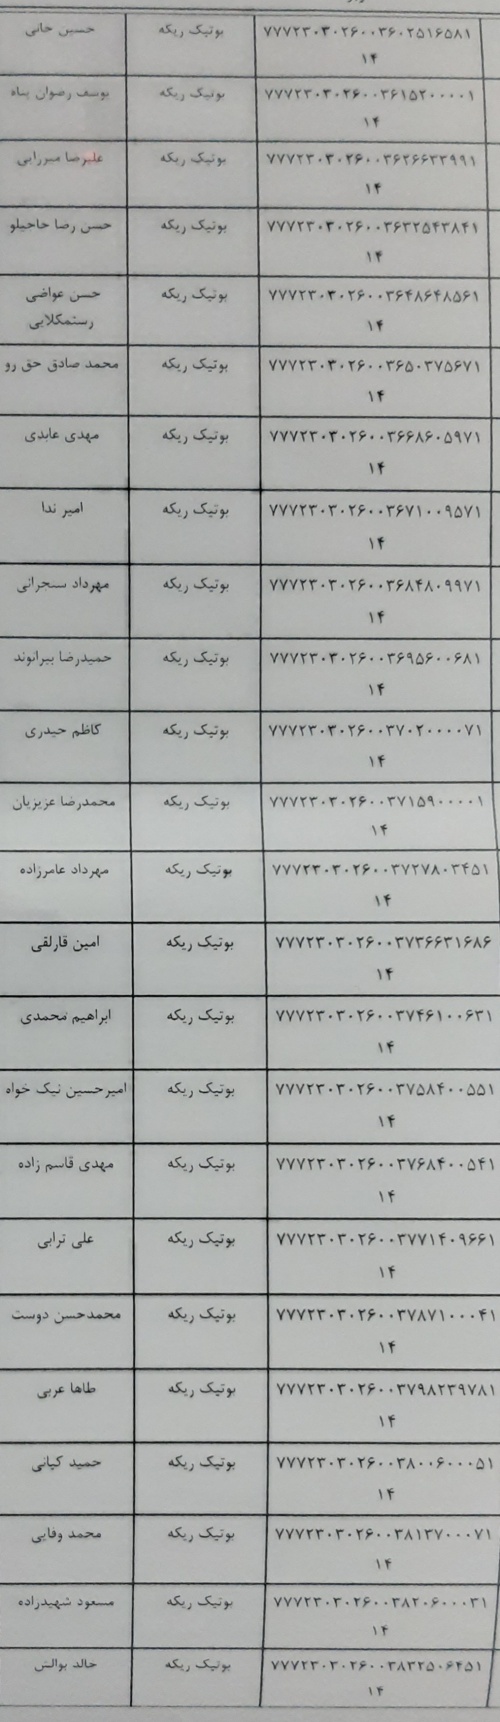 حسین خانی بوتیک ریکه ۷۷۷۲۳۰۳۰۲۶۰۰۳۶۰۲۵۱۶۵۸۱
۱۴
یوسف رضوان پناه بوتیک ریکه ۷۷۷۲۳۰۳۰۲۶۰۰۳۶۱۵۲۰۰۰۰۱
۱۴
علیرضا میرزایی بوتیک ریکه ۷۷۷۲۳۰۳۰۲۶۰۰۳۶۲۶۶۳۳۹۹۱
۱۴
حسن رضا حاجیلو بوتیک ریکه ۷۷۷۲۳۰۳۰۲۶۰۰۳۶۳۲۵۴۳۸۴۱
۱۴
حسن عواضی بوتیک ریکه ۷۷۷۲۳۰۳۰۲۶۰۰۳۶۴۸۶۴۸۵۶۱
رستمکلایی ۱۴
محمد صادق حق رو بوتیک ریکه ۷۷۷۲۳۰۳۰۲۶۰۰۳۶۵۰۳۷۵۶۷۱
۱۴
مهدی عابدی بوتیک ریکه ۷۷۷۲۳۰۳۰۲۶۰۰۳۶۶۸۶۰۵۹۷۱
۱۴
امیر ندا بوتیک ریکه ۷۷۷۲۳۰۳۰۲۶۰۰۳۶۷۱۰۰۹۵۷۱
۱۴
مهرداد سنجرانی بوتیک ریکه ۷۷۷۲۳۰۳۰۲۶۰۰۳۶۸۴۸۰۹۹۷۱
۱۴
حمیدرضا بیرانوند بوتیک ریکه ۷۷۷۲۳۰۳۰۲۶۰۰۳۶۹۵۶۰۰۶۸۱
۱۴
کاظم حیدری بوتیک ریکه ۷۷۷۲۳۰۳۰۲۶۰۰۳۷۰۲۰۰۰۰۷۱
۱۴
محمدرضا عزیزیان بوتیک ریکه ۷۷۷۲۳۰۳۰۲۶۰۰۳۷۱۵۹۰۰۰۰۱
۱۴
مهرداد عامرزاده بوتیک ریکه ۷۷۷۲۳۰۳۰۲۶۰۰۳۷۲۷۸۰۳۴۵۱
۱۴
امین قارلقی بوتیک ریکه ۷۷۷۲۳۰۳۰۲۶۰۰۳۷۳۶۶۳۱۶۸۶
۱۴
ابراهیم محمدی بوتیک ریکه ۷۷۷۲۳۰۳۰۲۶۰۰۳۷۴۶۱۰۰۶۳۱
۱۴
امیرحسین نیک خواه بوتیک ریکه ۷۷۷۲۳۰۳۰۲۶۰۰۳۷۵۸۴۰۰۵۵۱
۱۴
مهدی قاسم زاده بوتیک ریکه ۷۷۷۲۳۰۳۰۲۶۰۰۳۷۶۸۴۰۰۵۴۱
۱۴
علی ترابی بوتیک ریکه ۷۷۷۲۳۰۳۰۲۶۰۰۳۷۷۱۴۰۹۶۶۱
۱۴
محمدحسن دوست بوتیک ریکه ۷۷۷۲۳۰۳۰۲۶۰۰۳۷۸۷۱۰۰۰۴۱
۱۴
طاها عربی بوتیک ریکه ۷۷۷۲۳۰۳۰۲۶۰۰۳۷۹۸۲۳۹۷۸۱
۱۴
حمید کیانی بوتیک ریکه ۷۷۷۲۳۰۳۰۲۶۰۰۳۸۰۰۶۰۰۰۵۱
۱۴
محمد وفایی بوتیک ریکه ۷۷۷۲۳۰۳۰۲۶۰۰۳۸۱۳۷۰۰۰۷۱
۱۴
مسعود شهیدزاده بوتیک ریکه ۷۷۷۲۳۰۳۰۲۶۰۰۳۸۲۰۶۰۰۰۳۱
۱۴
خالد بوالش بوتیک ریکه ۷۷۷۲۳۰۳۰۲۶۰۰۳۸۳۲۵۰۶۴۵۱
۱۴